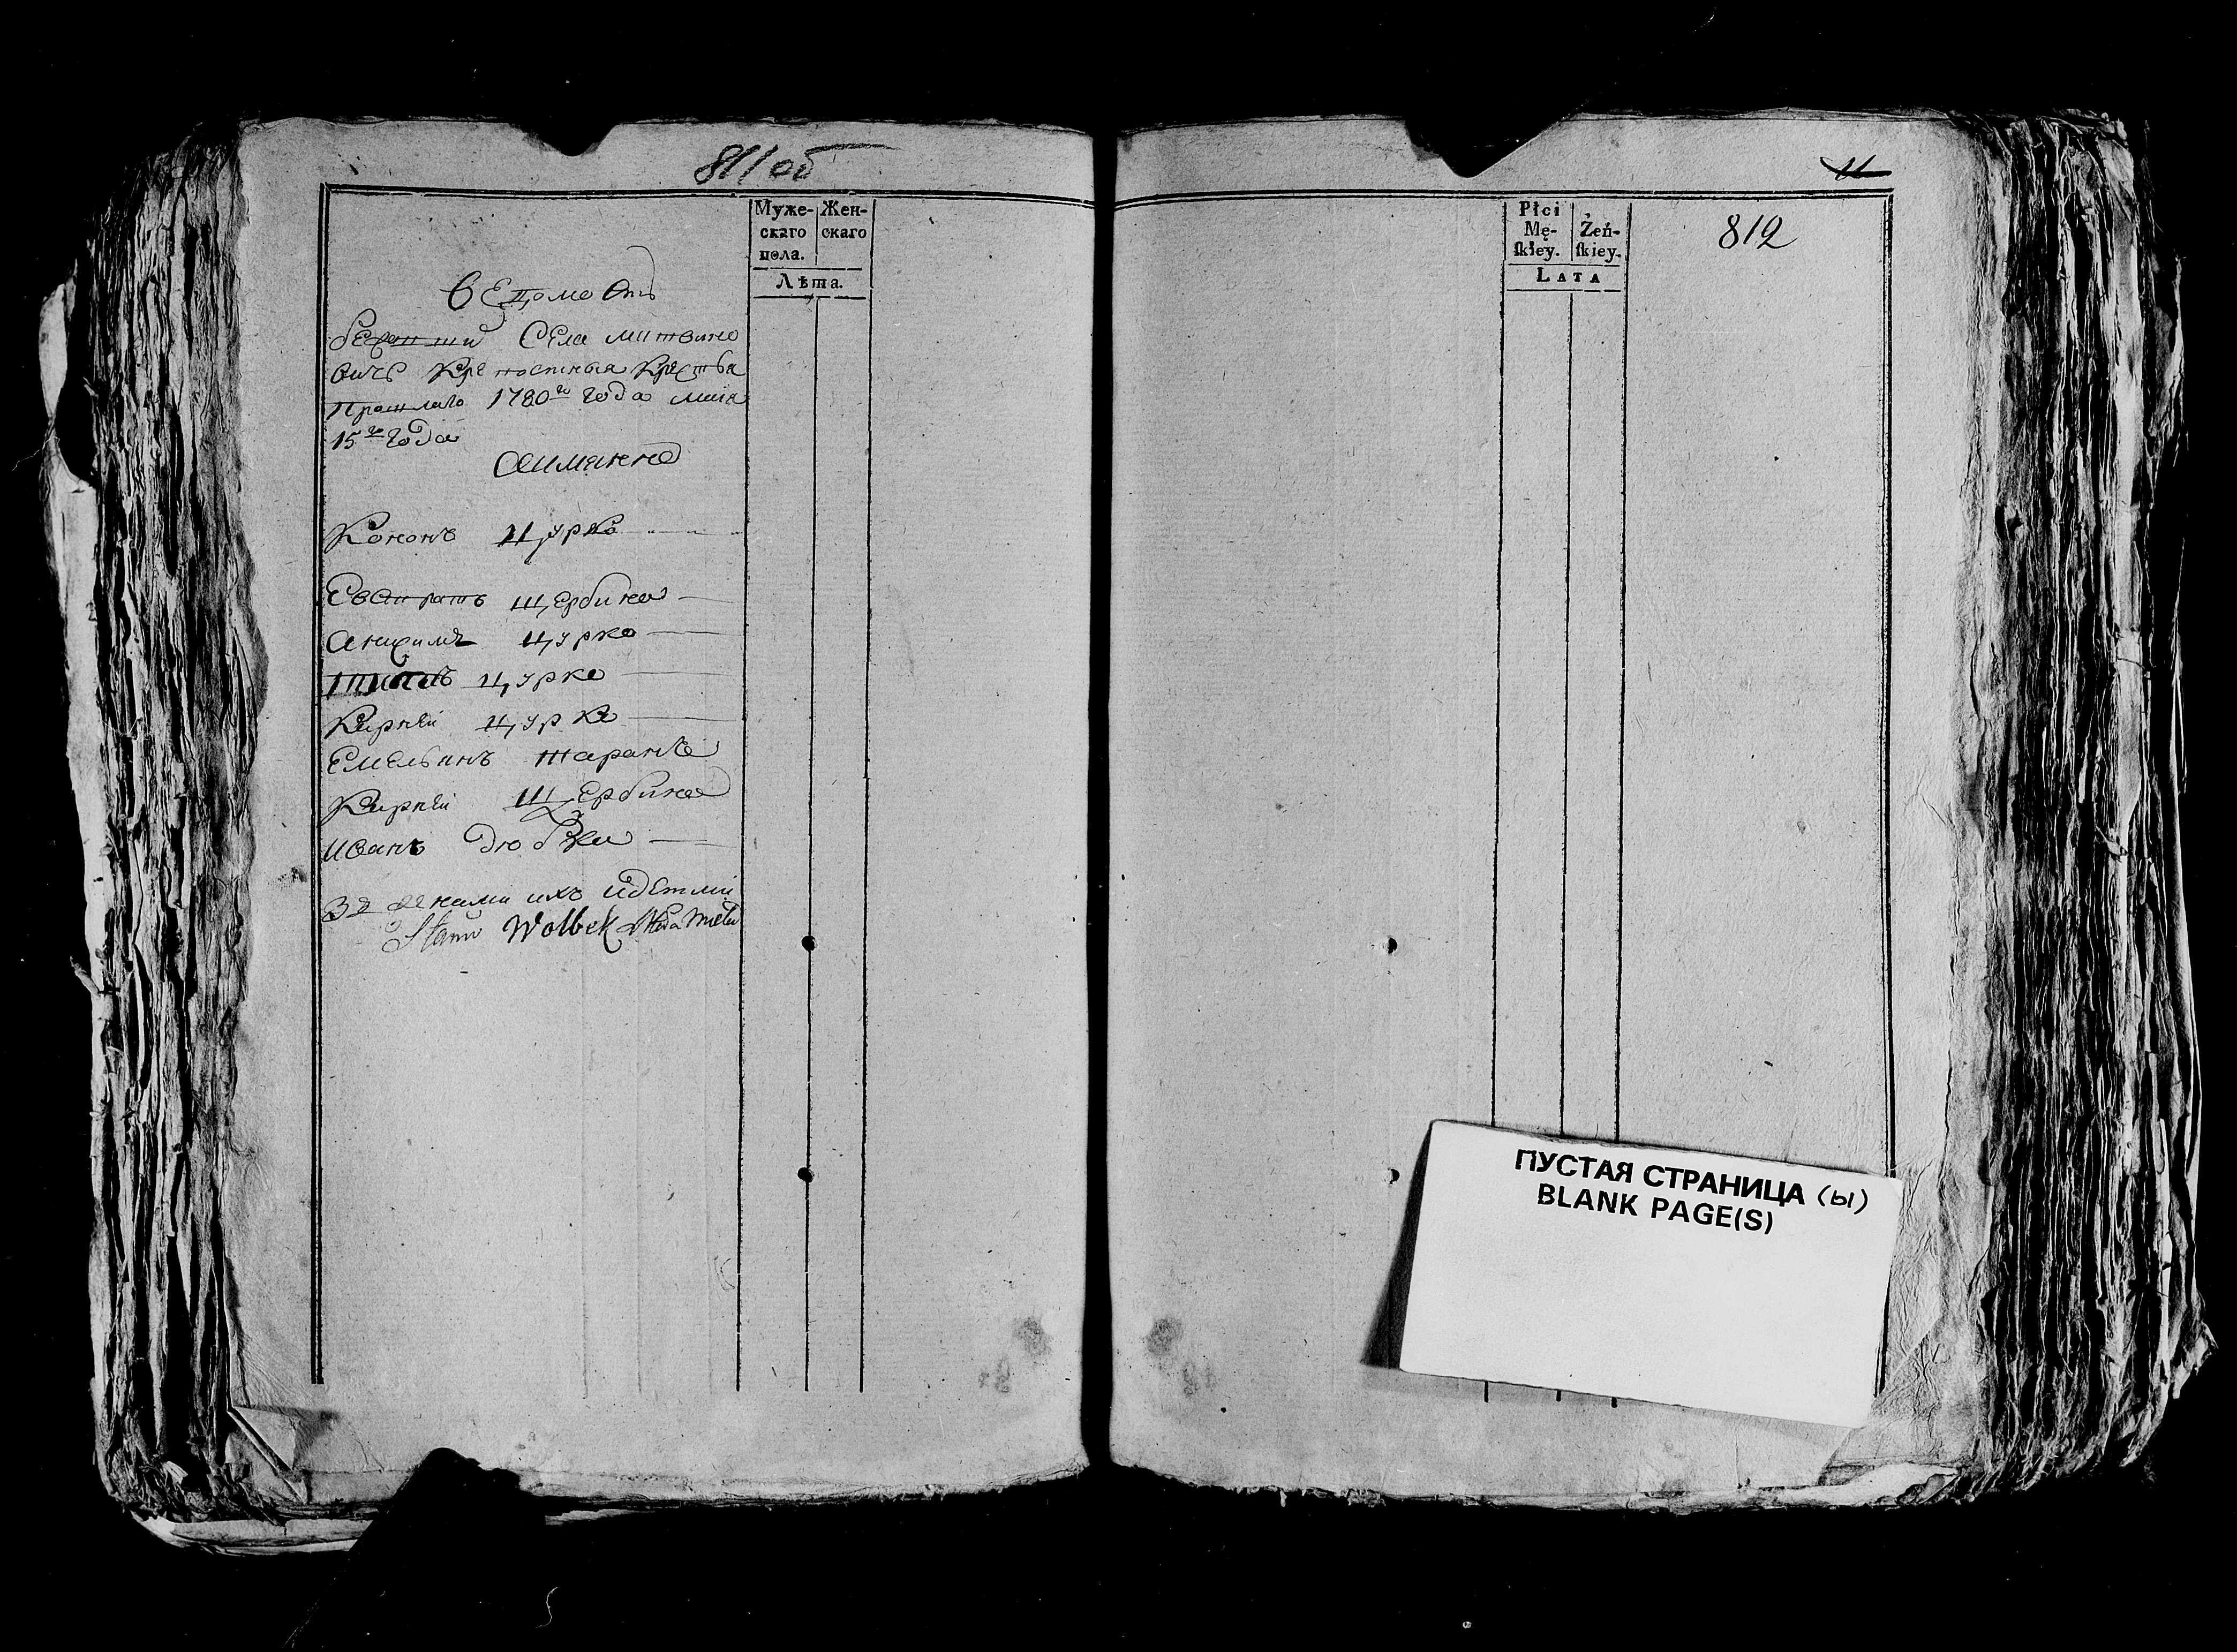 811об
Муже-
скаго
пола.
Жен-
скаго
Лѣта.
Ведомость
Села митвино
вичъ Крепостныя
прошлаго 1780го года
15го года
аимянно
Кононъ Цурко
Евстратъ щербина
анисимъ цурко
цурко
Кирней цурко
Емельянъ таранъ
Кирней Щербина
Иванъ
Зженами ихъ идетми
Wolbek
11
Płci
Mę-
ſkiey.
Żeń-
ſkiey.
LATA
812
ПУСТАЯ СТРАНИЦА (ы)
BLANK PAGE(S)